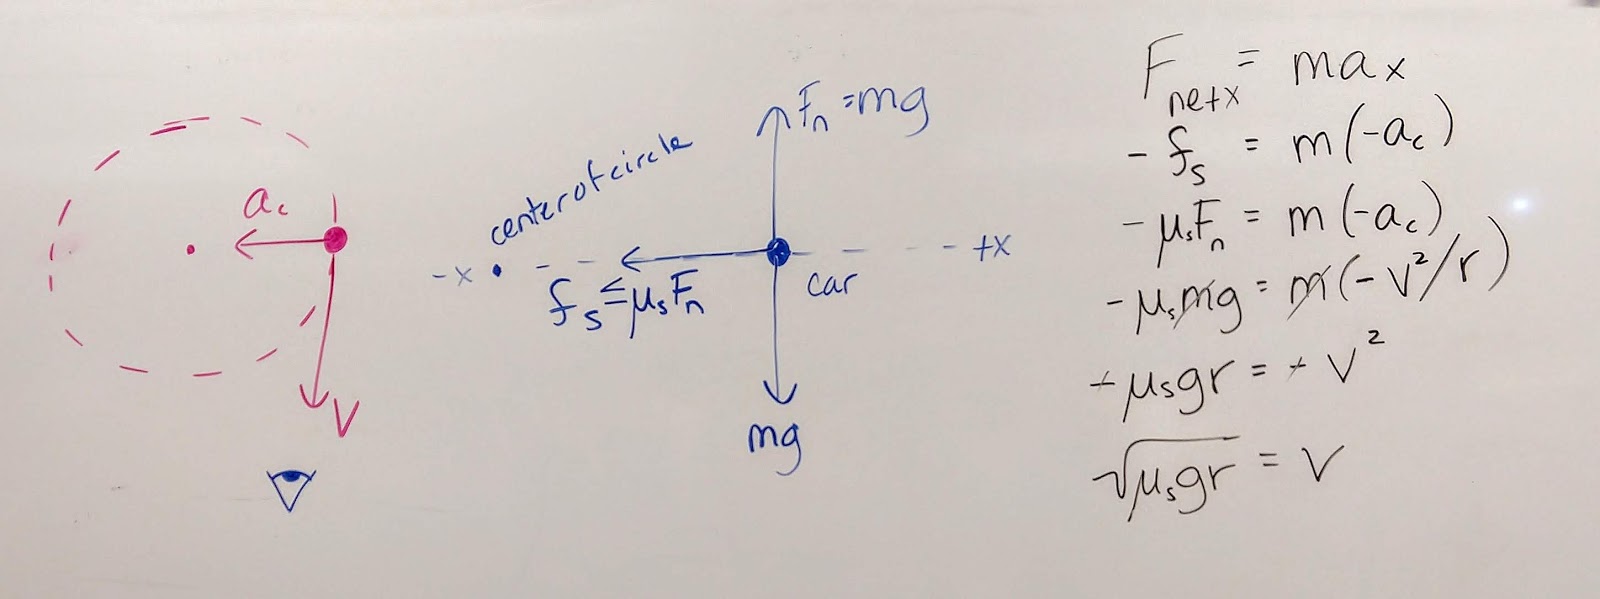 a_c
V
center of circle
F_n = mg
-x
+x
f_s ≤ μ_s F_n
car
mg
F_net x = ma_x
- f_s = m(-a_c)
- μ_s F_n = m(-a_c)
- μ_s mg = m(-v²/r)
+ μ_s gr = + v²
√μ_s gr = v